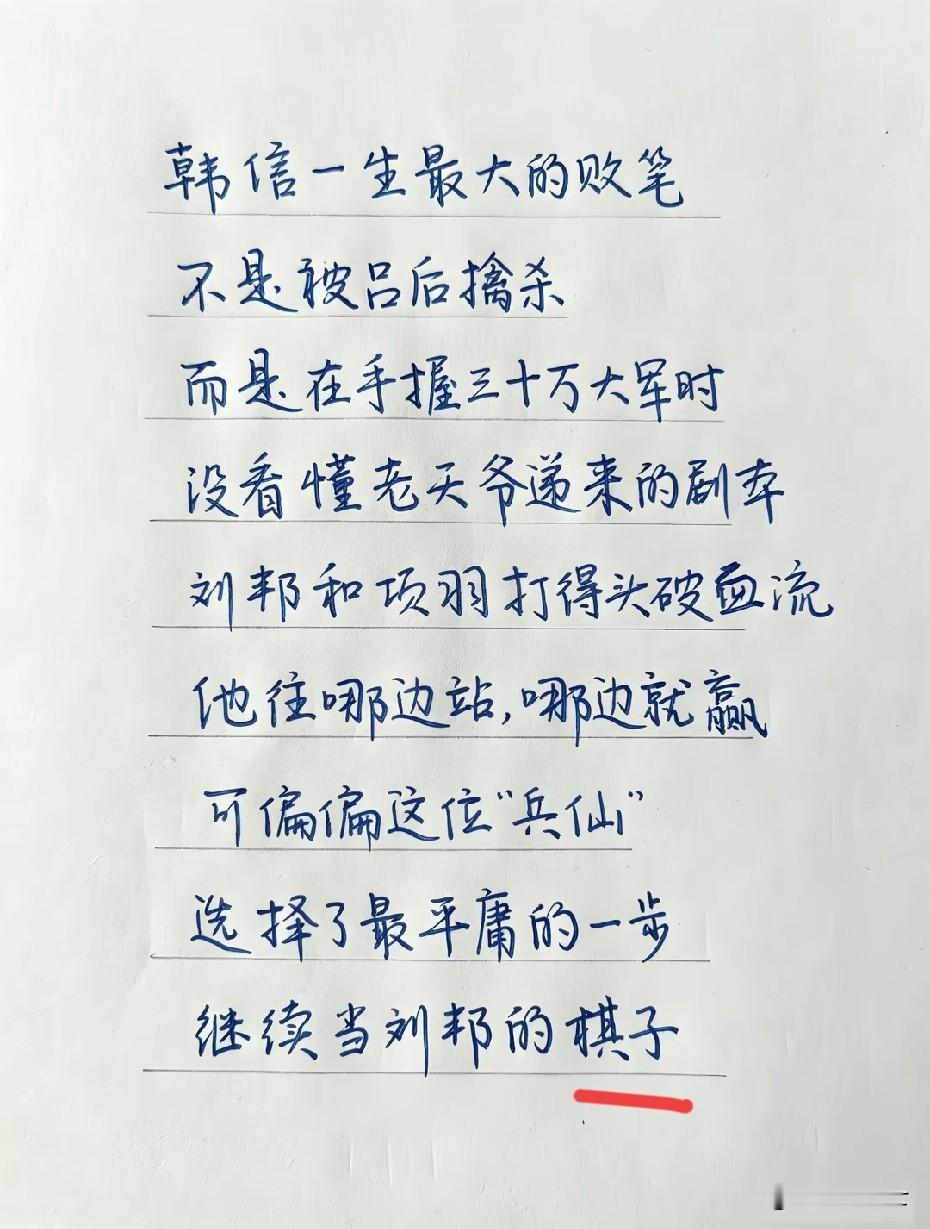 韩信一生最大的败笔
不是被吕后擒杀
而是在手握三十万大军时
没看懂老天爷递来的剧本
刘邦和项羽打得头破血流
他往哪边站,哪边就赢
可偏偏这位"兵仙"
选择了最平庸的一步
继续当刘邦的棋子